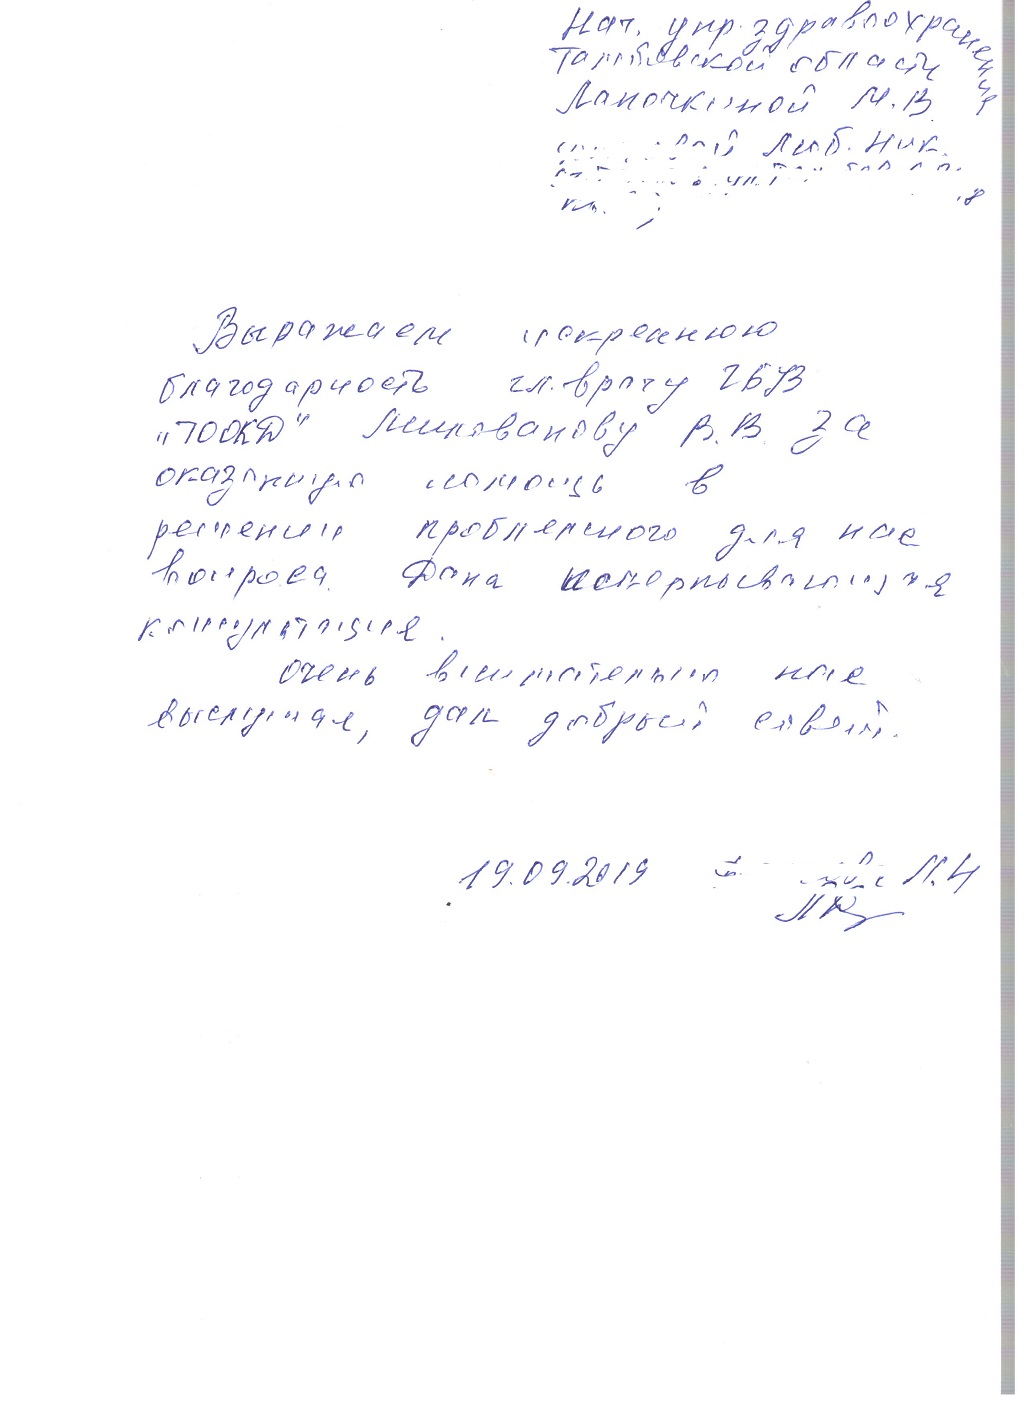 Нач. упр. здравоохранения
Тамбовской области
Лапочкиной М.В.
Люб. Ник.
Выражаем искреннюю
благодарность гл. врачу ГБУЗ
"ТООКД" Милованову В.В. за
оказанную помощь в
решении проблемного для нас
вопроса. Дана исчерпывающая
консультация.
Очень внимательно нас
выслушал, дал добрый совет.
19.09.2019 Л.Н